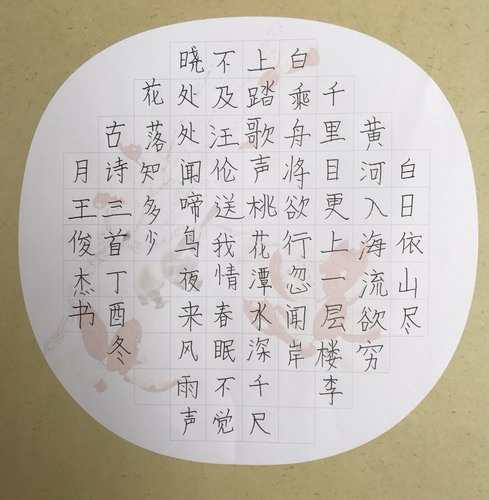 白日依山尽
黄河入海流欲穷
千里目更上一层楼李
白乘舟将欲行忽闻岸
上踏歌声桃花潭水深千尺
不及汪伦送我情春眠不觉
晓处处闻啼鸟夜来风雨声
花落知多少
古诗三首丁酉冬
月王俊杰书